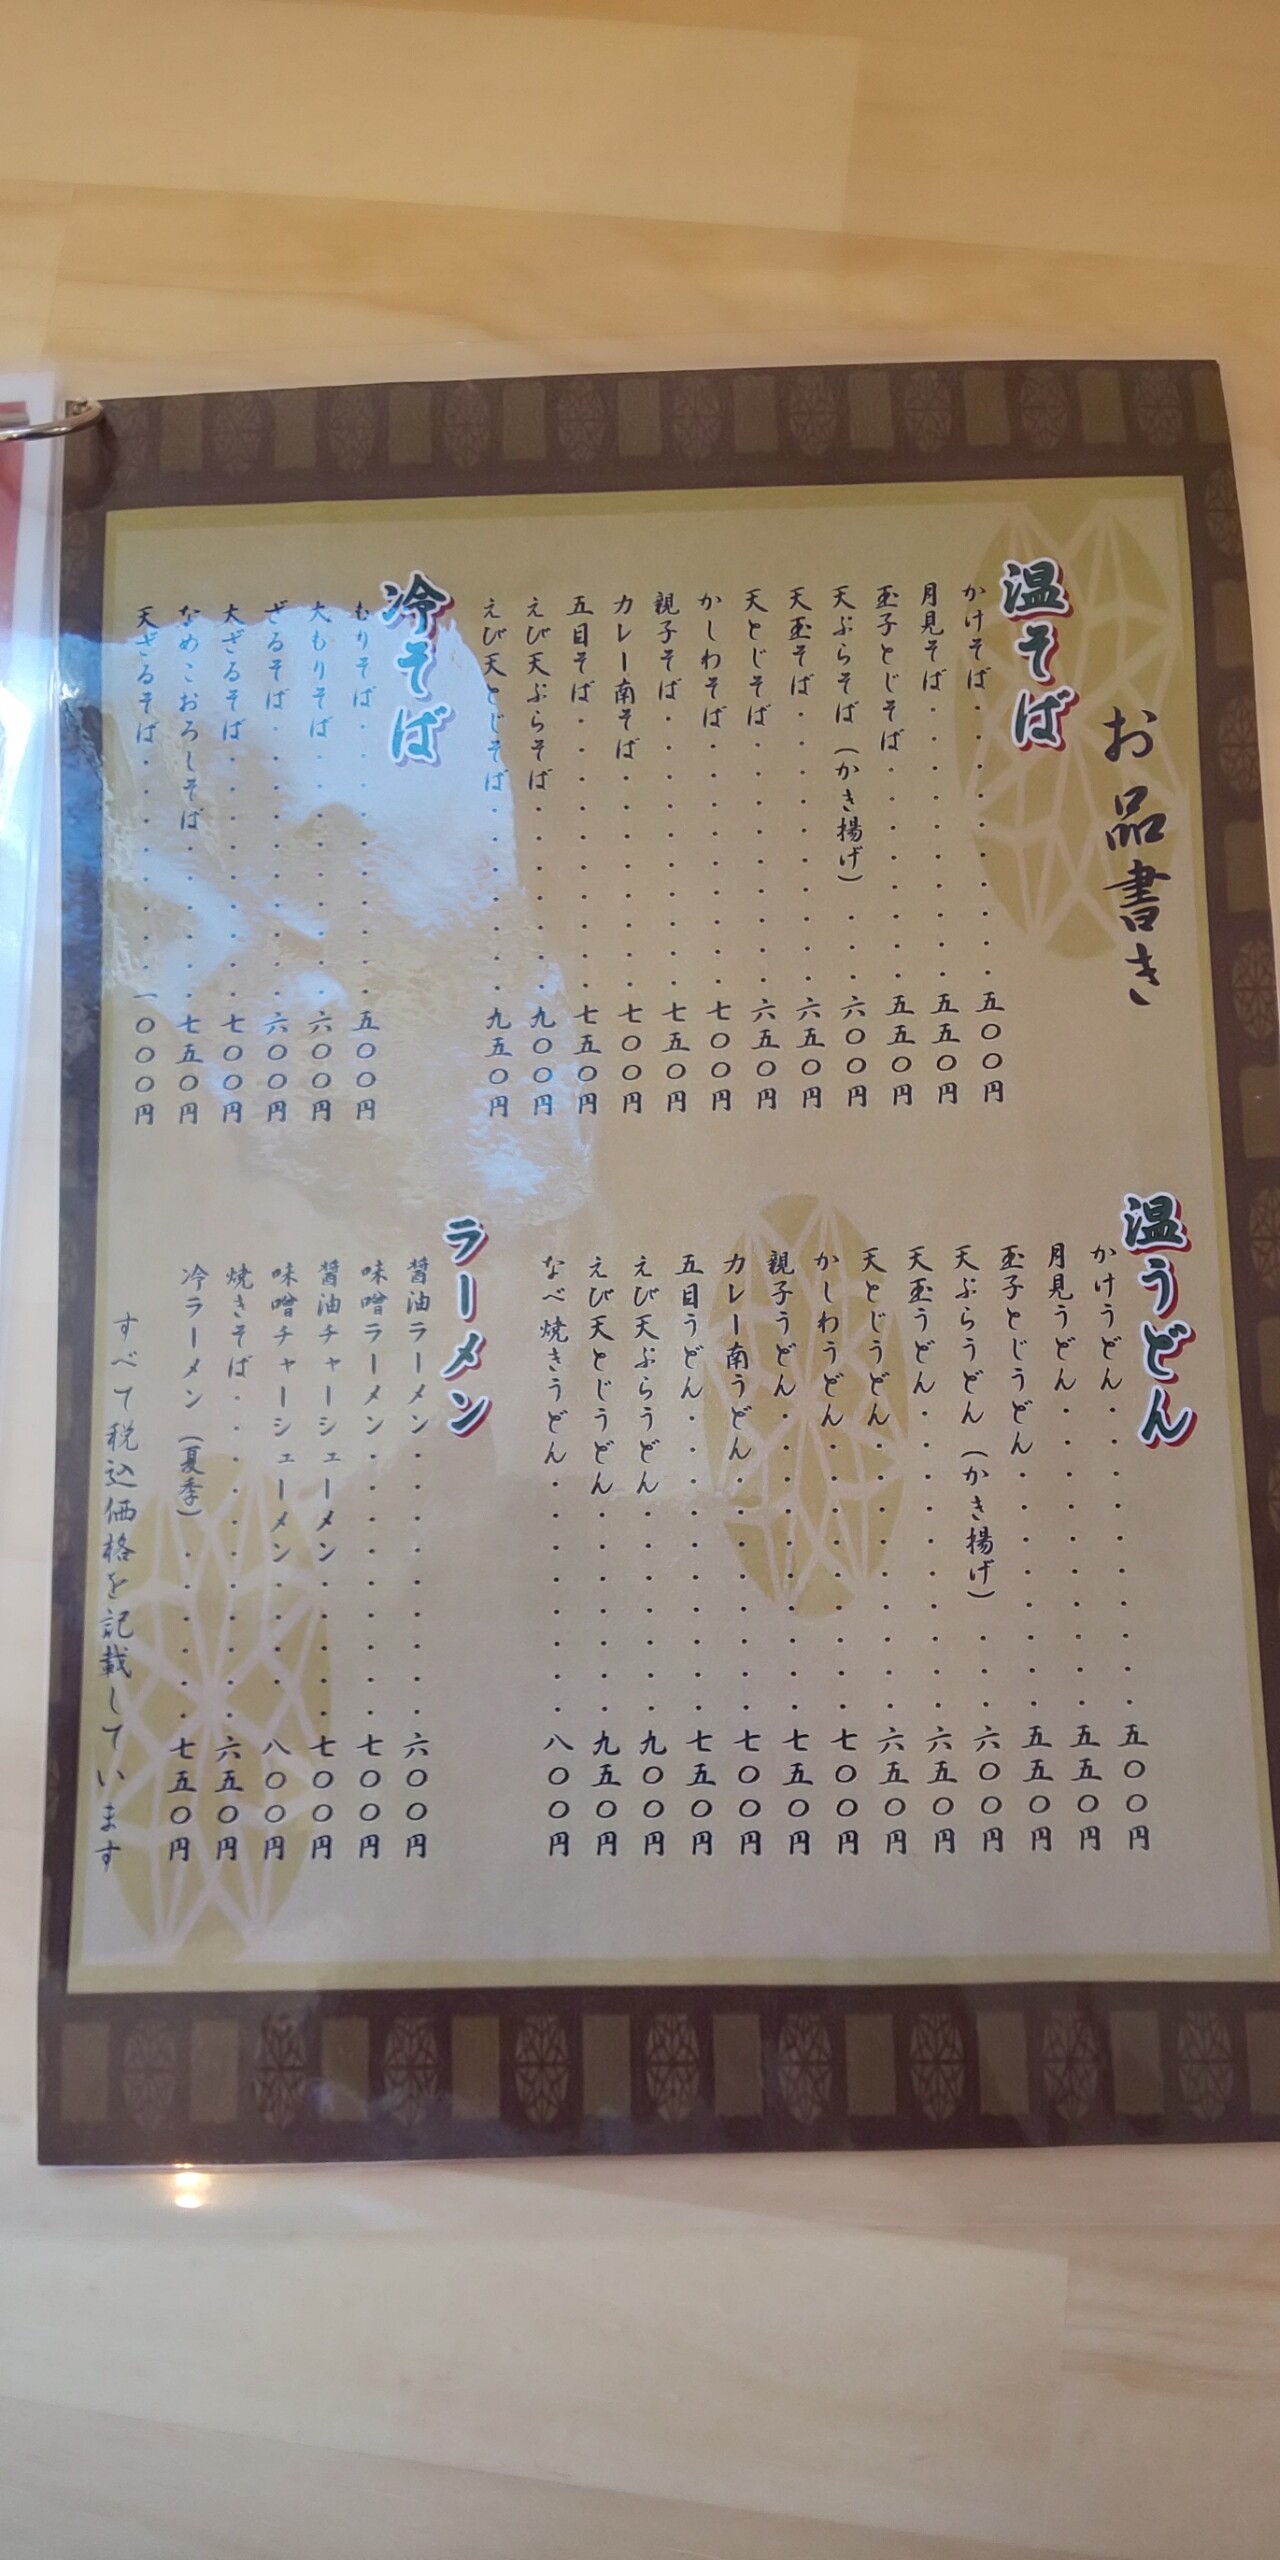 お品書き
温そば
かけそば・・・・・・・・・・五〇〇円
月見そば・・・・・・・・・・五五〇円
玉子とじそば・・・・・・・・五五〇円
天ぷらそば（かき揚げ）・・・六〇〇円
天玉そば・・・・・・・・・・六五〇円
天とじそば・・・・・・・・・六五〇円
かしわそば・・・・・・・・・七〇〇円
親子そば・・・・・・・・・・七五〇円
カレー南そば・・・・・・・・七〇〇円
五目そば・・・・・・・・・・七五〇円
えび天ぷらそば・・・・・・・九〇〇円
えび天とじそば・・・・・・・九五〇円
冷そば
もりそば・・・・・・・・・・五〇〇円
大もりそば・・・・・・・・・六〇〇円
ざるそば・・・・・・・・・・六〇〇円
大ざるそば・・・・・・・・・七〇〇円
なめこおろしそば・・・・・・七五〇円
天ざるそば・・・・・・・・・一〇〇〇円
温うどん
かけうどん・・・・・・・・・・五〇〇円
月見うどん・・・・・・・・・・五五〇円
玉子とじうどん・・・・・・・・五五〇円
天ぷらうどん（かき揚げ）・・・六〇〇円
天玉うどん・・・・・・・・・・六五〇円
天とじうどん・・・・・・・・・六五〇円
かしわうどん・・・・・・・・・七〇〇円
親子うどん・・・・・・・・・・七五〇円
カレー南うどん・・・・・・・・七〇〇円
五目うどん・・・・・・・・・・七五〇円
えび天ぷらうどん・・・・・・・九〇〇円
えび天とじうどん・・・・・・・九五〇円
なべ焼きうどん・・・・・・・・八〇〇円
ラーメン
醤油ラーメン・・・・・・・・・六〇〇円
味噌ラーメン・・・・・・・・・七〇〇円
醤油チャーシューメン・・・・・七〇〇円
味噌チャーシューメン・・・・・八〇〇円
焼きそば・・・・・・・・・・・六五〇円
冷ラーメン（夏季）・・・・・・七五〇円
すべて税込価格を記載しています